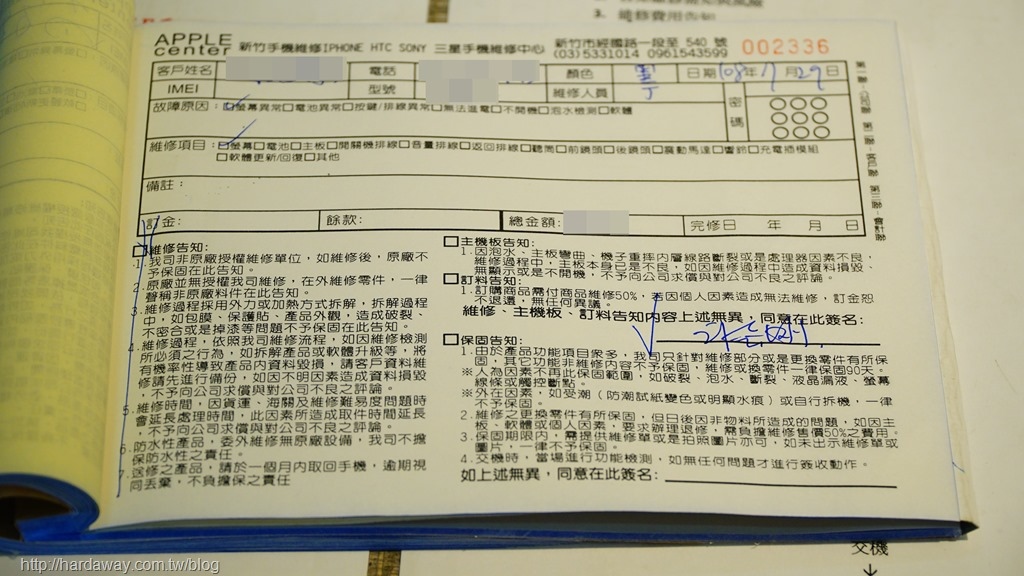 3. 維修費用告知
APPLE center 新竹手機維修IPHONE HTC SONY 三星手機維修中心
新竹市經國路一段至 540 號
(03)5331014 0961543599
002336
客戶姓名 電話 顏色 日期 108年 7月 29日
IMEI 型號 維修人員
故障原因：□螢幕異常□電池異常□按鍵/排線異常□無法進電□不開機□泡水檢測□軟體
密碼
維修項目：□螢幕□電池□主板□開關機排線□音量排線□返回排線□聽筒□前鏡頭□後鏡頭□震動馬達□響鈴□充電插模組
□軟體更新/回復□其他
備註：
訂金: 餘款: 總金額: 完修日 年 月 日
第一聯:公司聯 第二聯:客戶聯 第三聯:會計聯
□維修告知:
1.我司非原廠授權維修單位，如維修後，原廠不
予保固在此告知。
2.原廠並無授權我司維修，在外維修零件，一律
聲稱非原廠料件在此告知。
3.維修過程採用外力或加熱方式拆解，拆解過程
中，如包膜、保護貼、產品外觀，造成破裂、
不密合或是掉漆等問題不予保固在此告知。
4.維修過程，依照我司維修流程，如因維修檢測
所必須之行為，如拆解產品或軟體升級等，將
有機率性導致產品內資料毀損，請客戶資料維
修請先進行備份，如因不明因素造成資料損毀
，不予向公司求償與對公司不良之評論。
5.維修時間，因貨運、海關及維修難易度問題時
會延長處理時間，此因素所造成取件時間延長
，不予向公司求償與對公司不良之評論。
6.防水性產品，委外維修無原廠設備，我司不擔
保防水性之責任。
7.送修之產品，請於一個月內取回手機，逾期視
同丟棄，不負擔保之責任
□主機板告知:
1.因泡水、主板彎曲、機子重摔內層線路斷裂或是處理器因素不良，
維修過程中，主板本身已是不良，如因維修過程中造成資料損毀、
無顯示或是不開機，不予向公司求償與對公司不良之評論。
□訂料告知:
1.訂購商品需付商品維修50%，若因個人因素造成無法維修，訂金恕
不退還，無任何異議。
維修、主機板、訂料告知內容上述無異，同意在此簽名:
□保固告知:
1.由於產品功能項目眾多，我司只針對維修部分或是更換零件有所保
固，其它功能非維修內容不予保固，維修或換零件一律保固90天。
※人為因素不再此保固範圍，如破裂、泡水、斷裂、液晶漏液、螢幕
線條或觸控斷點。
※外在因素，如受潮（防潮試紙變色或明顯水痕）或自行拆機，一律
不予保固。
2.維修之更換零件有所保固，但日後因非物料所造成的問題，如因主
板、軟體或個人因素，要求辦理退修，需負擔維修售價50%之費用。
3.保固期限內，需提供維修單或是拍照圖片亦可，如未出示維修單或
圖片，一律不予保固。
4.交機時，當場進行功能檢測，如無任何問題才進行簽收動作。
如上述無異，同意在此簽名:
交機
http://hardaway.com.tw/blog